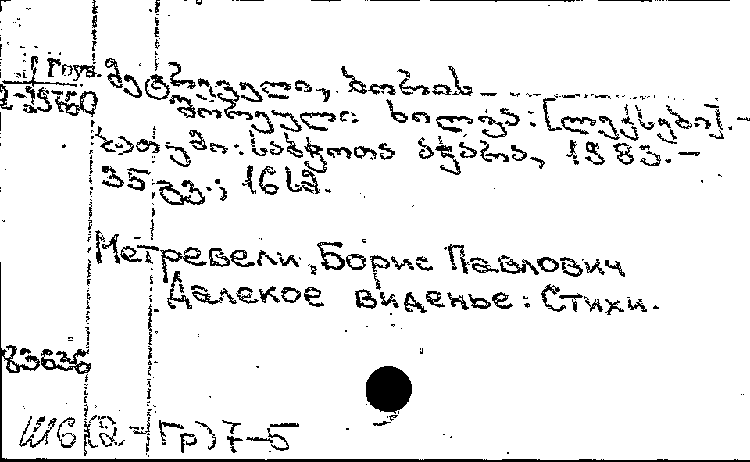 Груз.
მეტრეველი, ბორის
2-35760
შორეული ხილვა: [ლექსები]. –
ბათუმი: საბჭოთა აჭარა, 1983. –
35 გვ.; 16 სმ.
Метревели, Борис Павлович
Далекое виденье: Стихи.
83636
Ш6(2=Гр)7-5